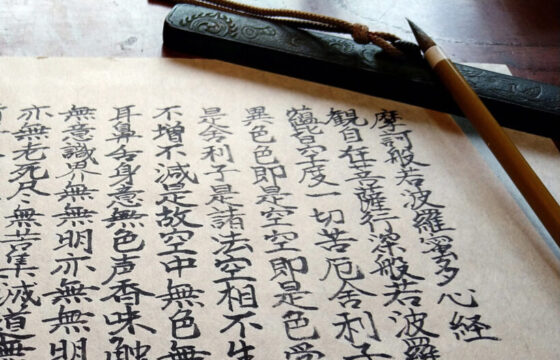 摩訶般若波羅蜜多心経
観自在菩薩行深般若波羅
蘊皆空度一切苦厄舎利子
異色色即是空空即是色受
是舎利子是諸法空相不生
不増不減是故空中無色無
耳鼻舌身意無色声香味触
無意識界無無明亦無無明
亦無老死尽無苦集滅道無